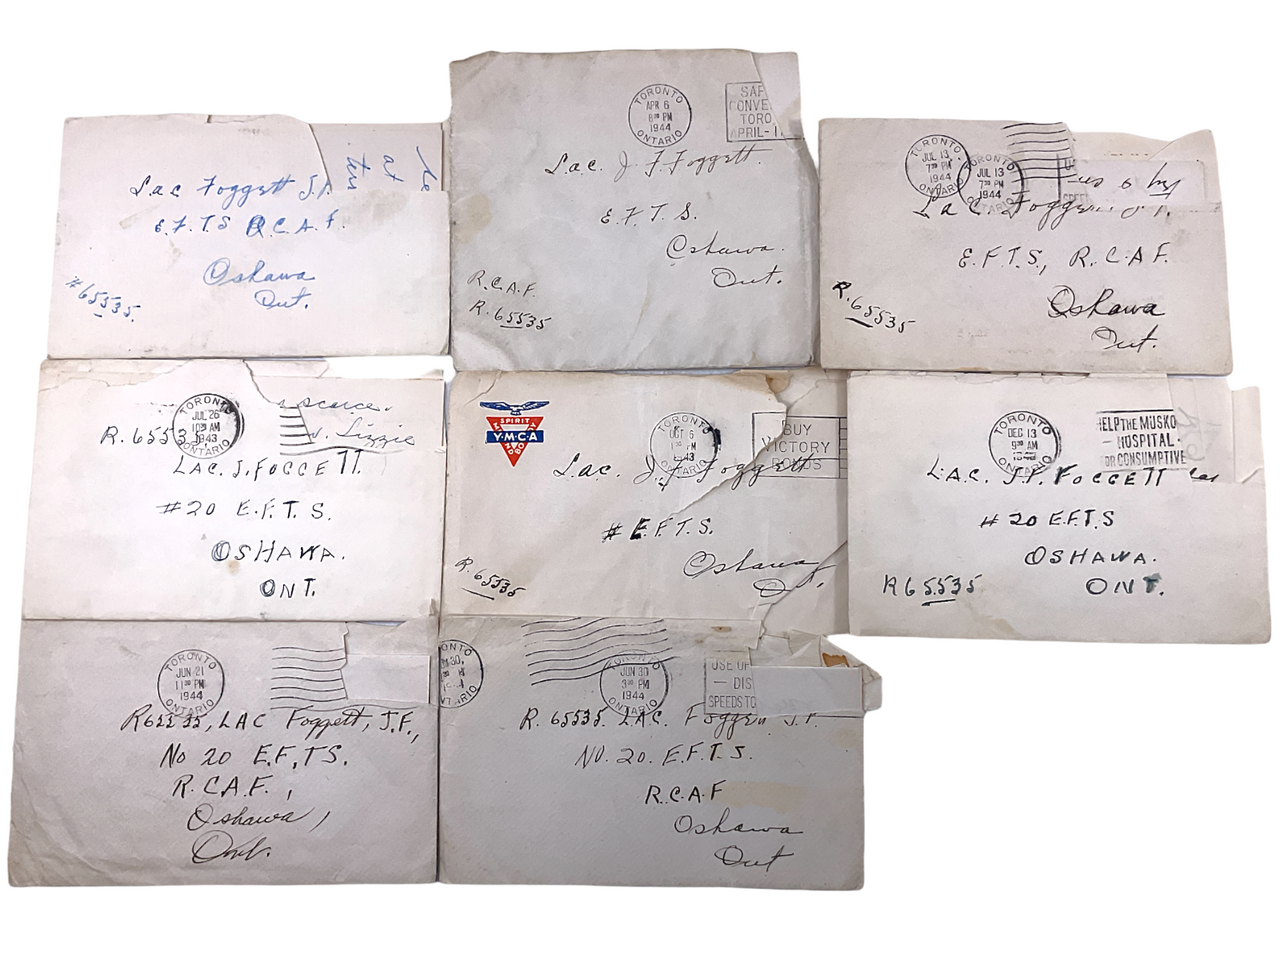 Lac Foggett J.
E.F.T.S R.C.A.F.
Oshawa
Ont.
#65535.
at
TORONTO
APR 6
8 30 PM
1944
ONTARIO
TORO
APRIL-1
Lac. J F Foggett.
E.F.T.S.
Oshawa.
Ont.
R.C.A.F.
R.65535
TORONTO
JUL 13
7 30 PM
1944
ONTARIO
TORONTO
JUL 13
7 30 PM
1944
ONTARIO
Lac Foggett J.F.
E.F.T.S, R.C.A.F.
Oshawa
Ont.
R.65535
TORONTO
JUL 26
10 30 AM
1943
ONTARIO
scarce.
Lizzie
R.65535,
LAC. J. FOGGETT.
#20 E.F.T.S.
OSHAWA.
ONT.
SPIRIT
Y·M·C·A
MIND
BODY
OCT 6
PM
1943
BUY
VICTORY
BONDS
Lac. J. F Foggett
# E.F.T.S.
Oshawa,
R.65535
TORONTO
DEC 13
9 30 AM
ONTARIO
HELP THE MUSKO
— HOSPITAL.
FOR CONSUMPTIVE
LAC. J.F. FOGGETT
#20 E.F.T.S
OSHAWA.
ONT.
R65535
TORONTO
JUN 21
11 30 PM
1944
ONTARIO
R65535, LAC Foggett, J.F.,
No 20 E.F.T.S.
R.C.A.F.,
Oshawa,
Ont.
TORONTO
JUN 30
3 30 PM
1944
ONTARIO
USE OF
— DIS
SPEEDS TO
R.65535. LAC. Foggett J.F.
NO. 20. E.F.T.S.
R.C.A.F
Oshawa
Ont